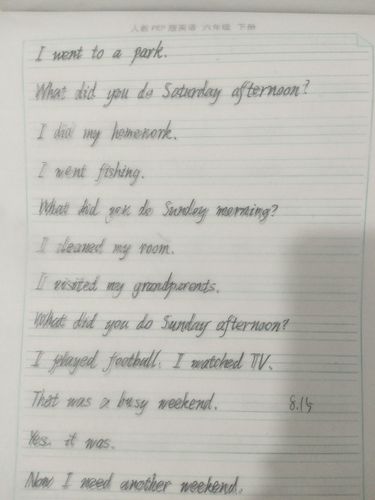 人教 PEP 版英语 六年级 下册
I went to a park.
What did you do Saturday afternoon?
I did my homework.
I went fishing.
What did you do Sunday morning?
I cleaned my room.
I visited my grandparents.
What did you do Sunday afternoon?
I played football. I watched TV.
That was a busy weekend. 8.15
Yes. it was.
Now I need another weekend.